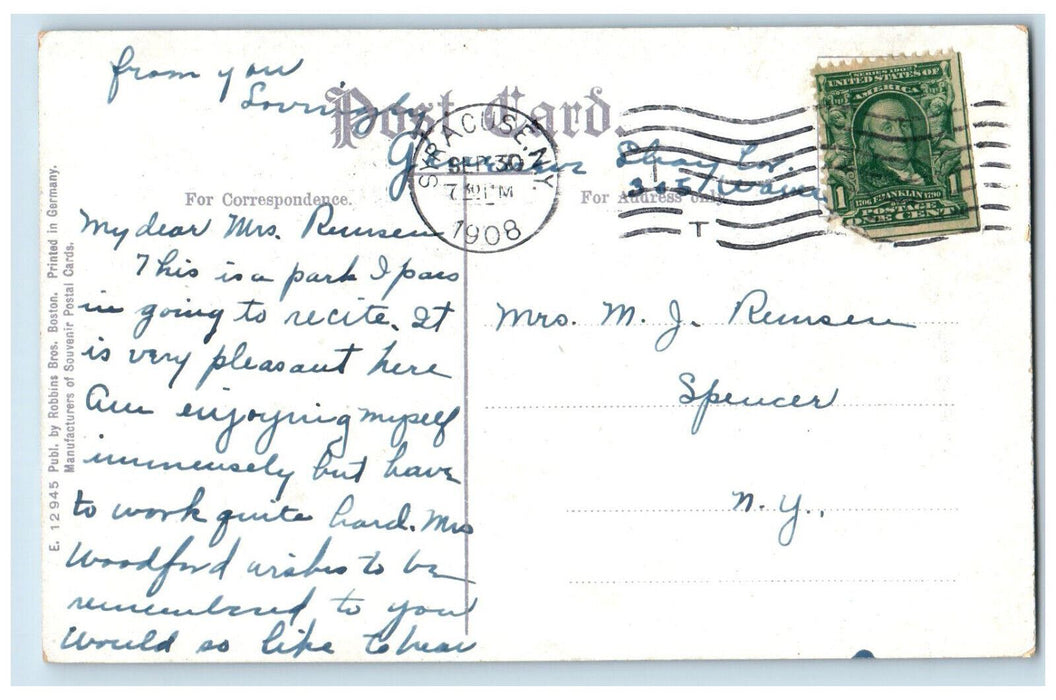 Post Card.
For Correspondence.
For Address only
My dear Mrs. Remsen
This is a park I pass
in going to recite. It
is very pleasant here
Am enjoying myself
immensely but have
to work quite hard. Mrs
Woodford wishes to be
remembered to you
Would so like to hear
from you
Lovingly
305
SYRACUSE, N.Y.
SEP 30
7 30 PM
1908
T
SERIES 1902
UNITED STATES OF
AMERICA
1706 FRANKLIN 1790
POSTAGE
1 ONE CENT 1
Mrs. M. J. Remsen
Spencer
N. Y.,
E. 12945 Publ. by Robbins Bros. Boston. Printed in Germany.
Manufacturers of Souvenir Postal Cards.